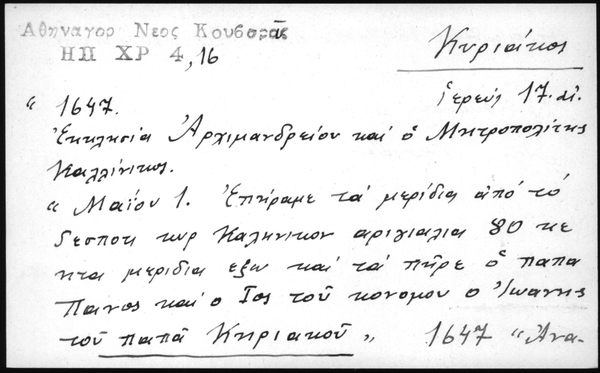 Αθηναγορ Νεος Κουβαρᾶς
ΗΠ ΧΡ 4,16
Κυριάκος
ἱερεύς 17. αἰ.
" 1647.
Ἐκκλησία Ἀρχιμανδρείου καί ὁ Μητροπολίτης
Καλλίνικος.
" Μαΐου 1. Ἐπήραμε τά μερίδια ἀπό τό
δεσποτι κυρ Καληνικον αριγιαλια 80 κε
ητα μεριδια εξω καί τά πῆρε ὁ παπα
Πανος καί ο Ιος τοῦ κονομου ο Ἰωανης
τοῦ παπᾶ Κηριακοῦ „ 1647 "Ἀνα-